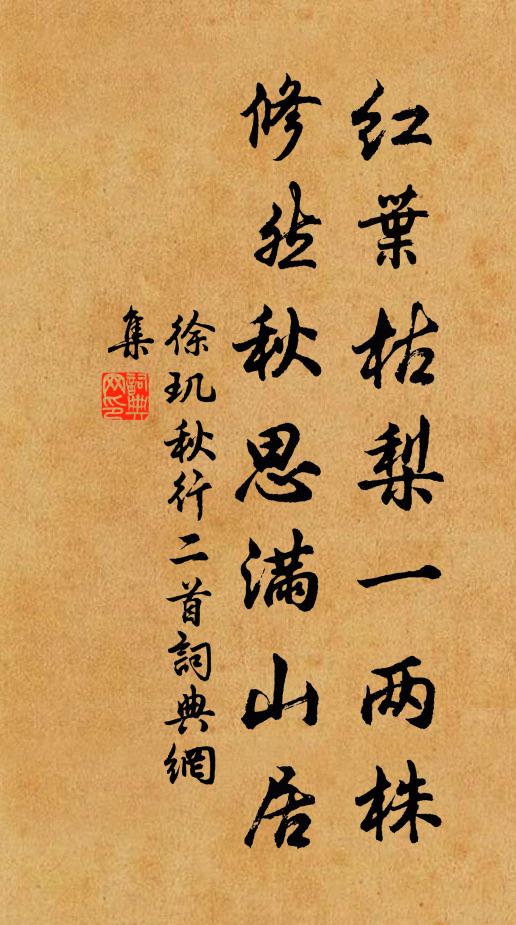 紅葉枯梨一两株
修然秋思满山居
徐玑秋行二首詞典網
集
詞典
网印